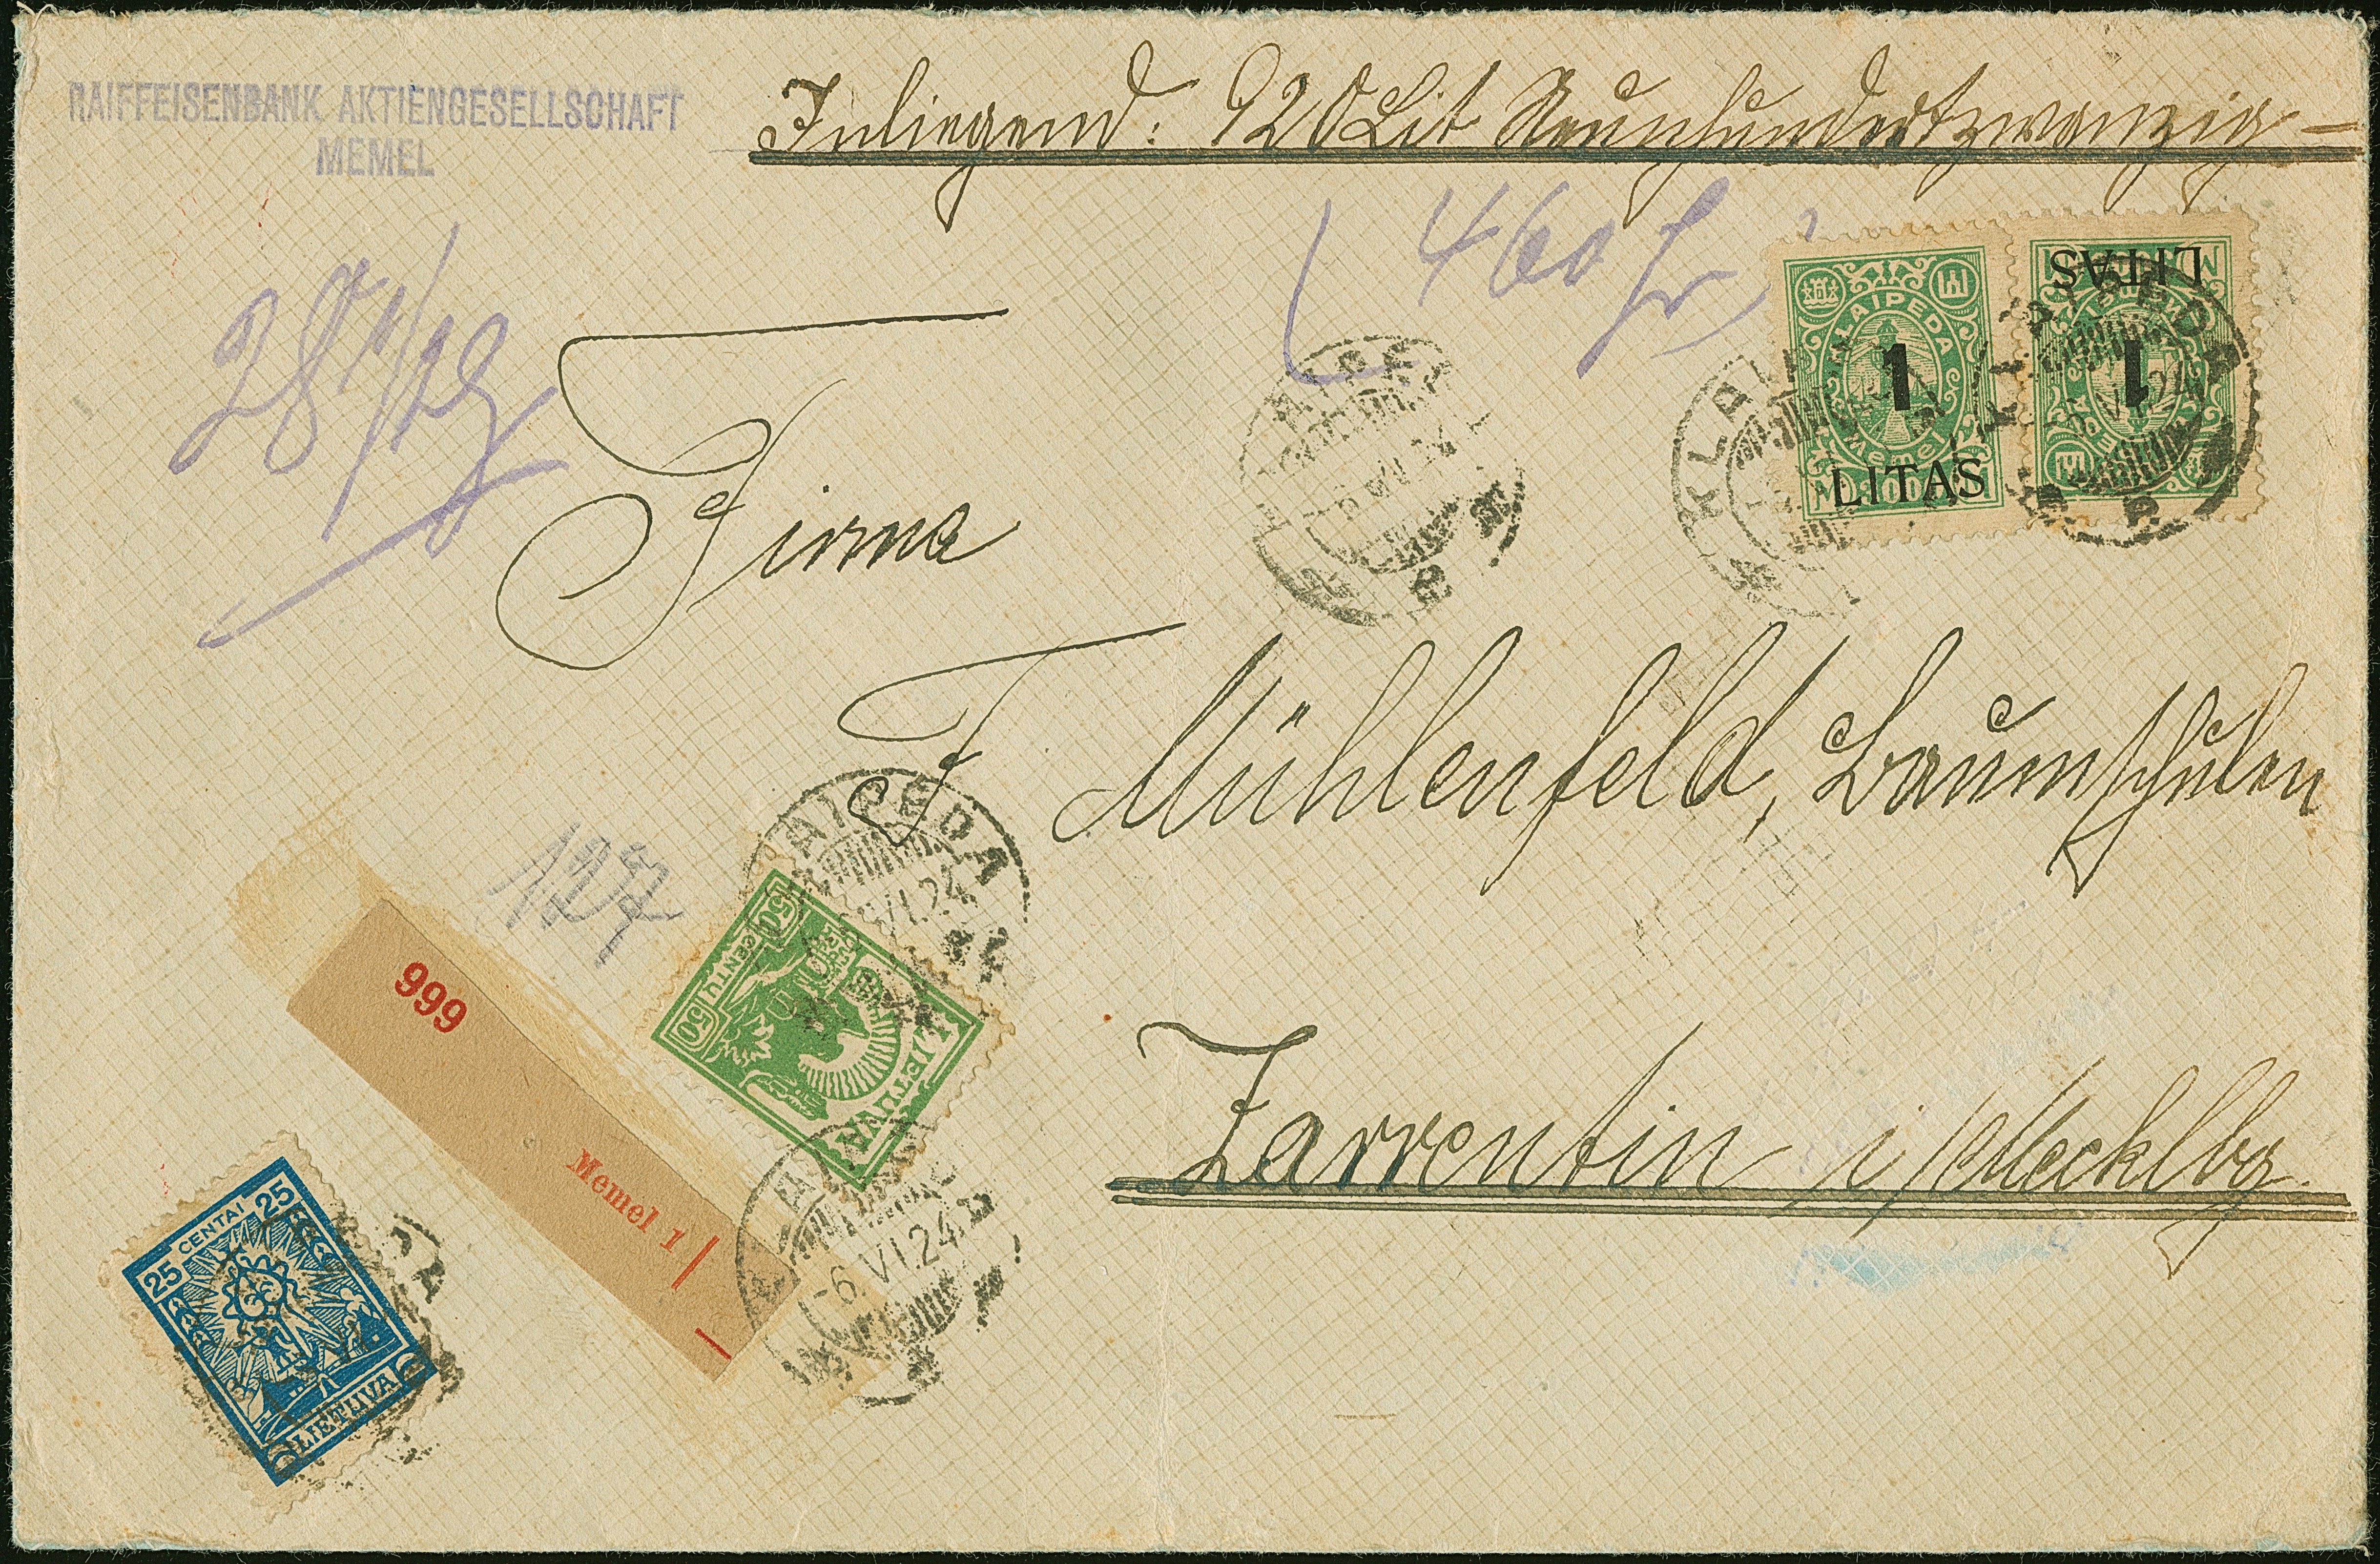 RAIFFEISENBANK AKTIENGESELLSCHAFT
MEMEL
Inliegend: 920 Lit Neunhundertzwanzig –
460 fr
KLAIPEDA
1
Memel
LITAS
KLAIPEDA
1
LITAS
KLAIPEDA
-6.VI.24
Firma
F Mühlenfeld, Baumschulen
127
KLAIPEDA
VI.24
50 CENTŲ 50
LIETUVA
999
Memel 1
-6.VI.24
Zarrentin i/Mecklbg.
25 CENTAI 25
LIETUVA